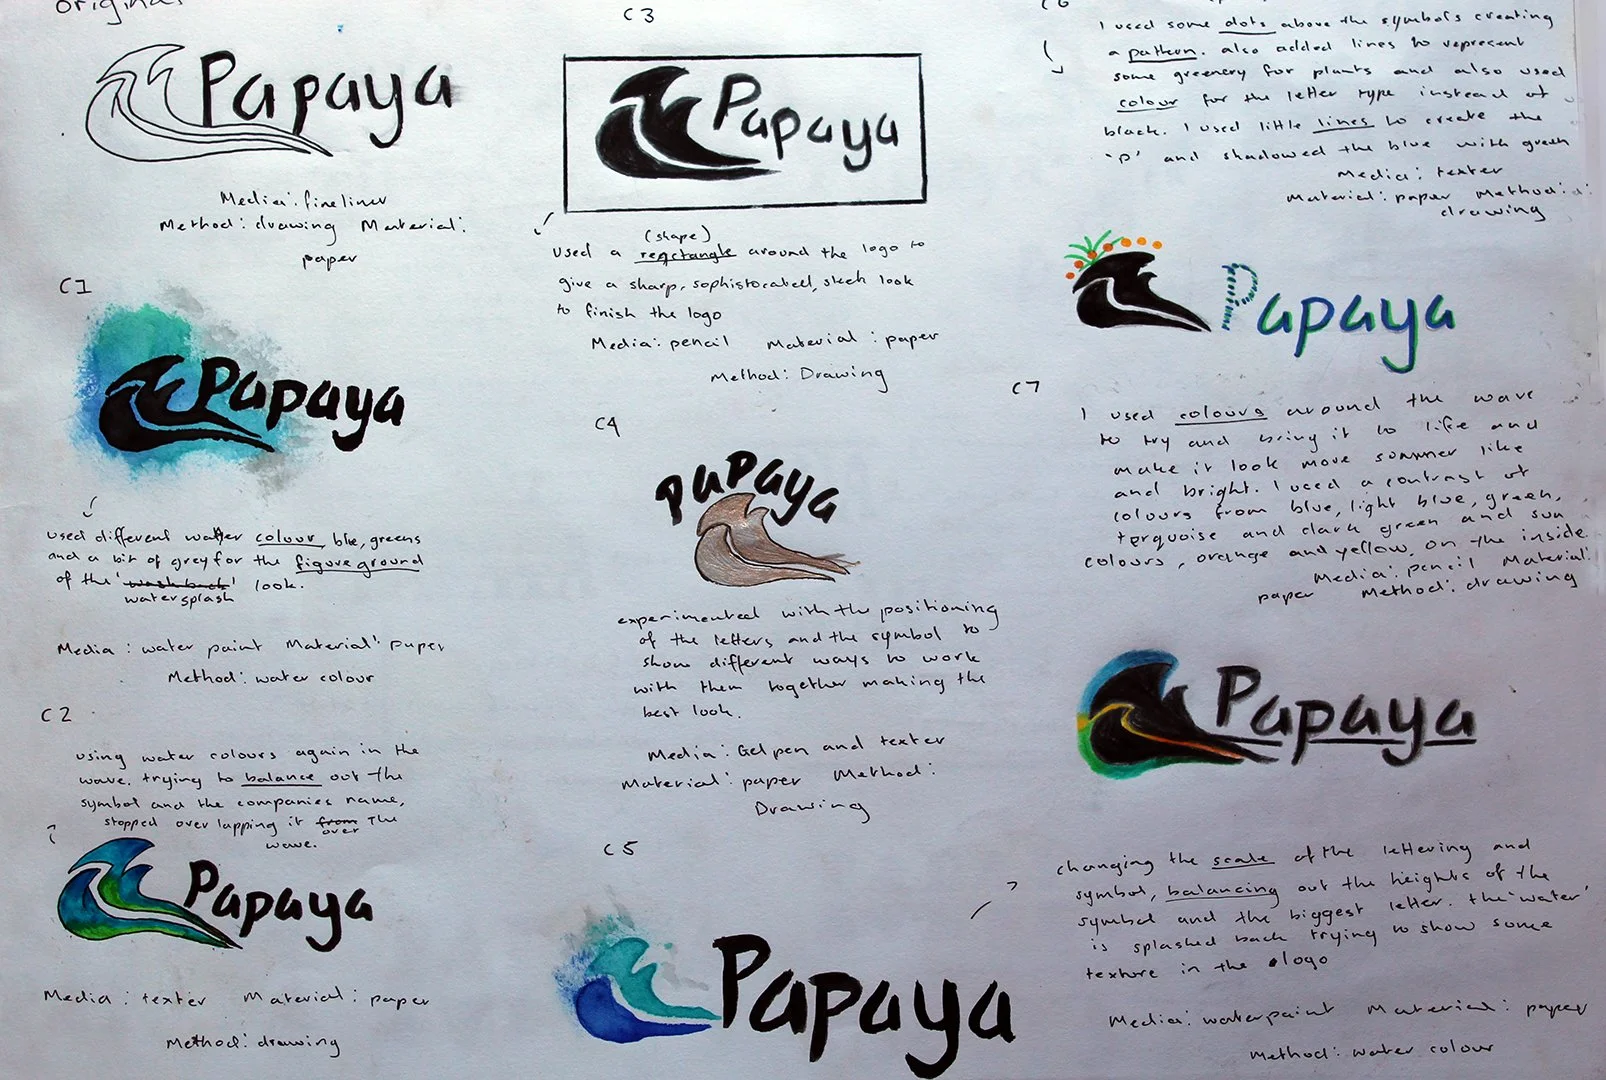 original
Papaya
Media: fineliner
Method: drawing Material:
paper
C1
Papaya
used different water colour, blue, greens
and a bit of grey for the figure ground
of the 'wash back' look.
watersplash
Media: water paint Material: paper
Method: water colour
C2
using water colours again in the
wave. trying to balance out the
symbol and the companies name,
stopped over lapping it from the
over
wave.
Papaya
Media: texter Material: paper
Method: drawing
C3
Papaya
(shape)
used a reqctangle around the logo to
give a sharp, sophistocated, sleek look
to finish the logo
Media: pencil Material: paper
Method: Drawing
C4
PaPaya
experimented with the positioning
of the letters and the symbol to
show different ways to work
with them together making the
best look.
Media: Gel pen and texter
Material: paper Method:
Drawing
C5
Papaya
changing the scale of the lettering and
symbol, balancing out the heights of the
symbol and the biggest letter. the 'water'
is splashed back trying to show some
texture in the logo
Media: waterpaint Material: paper
Method: water colour
C6
I used some dots above the symbols creating
a pattern. also added lines to represent
some greenery for plants and also used
colour for the letter type instead of
black. I used little lines to create the
'p' and shadowed the blue with green
Media: texter
Material: paper Method:
drawing
Papaya
C7
I used colours around the wave
to try and bring it to life and
make it look more summer like
and bright. I used a contrast of
colours from blue, light blue, green,
terquoise and dark green and sun
colours, orange and yellow, on the inside.
Media: pencil Material:
paper Method: drawing
Papaya